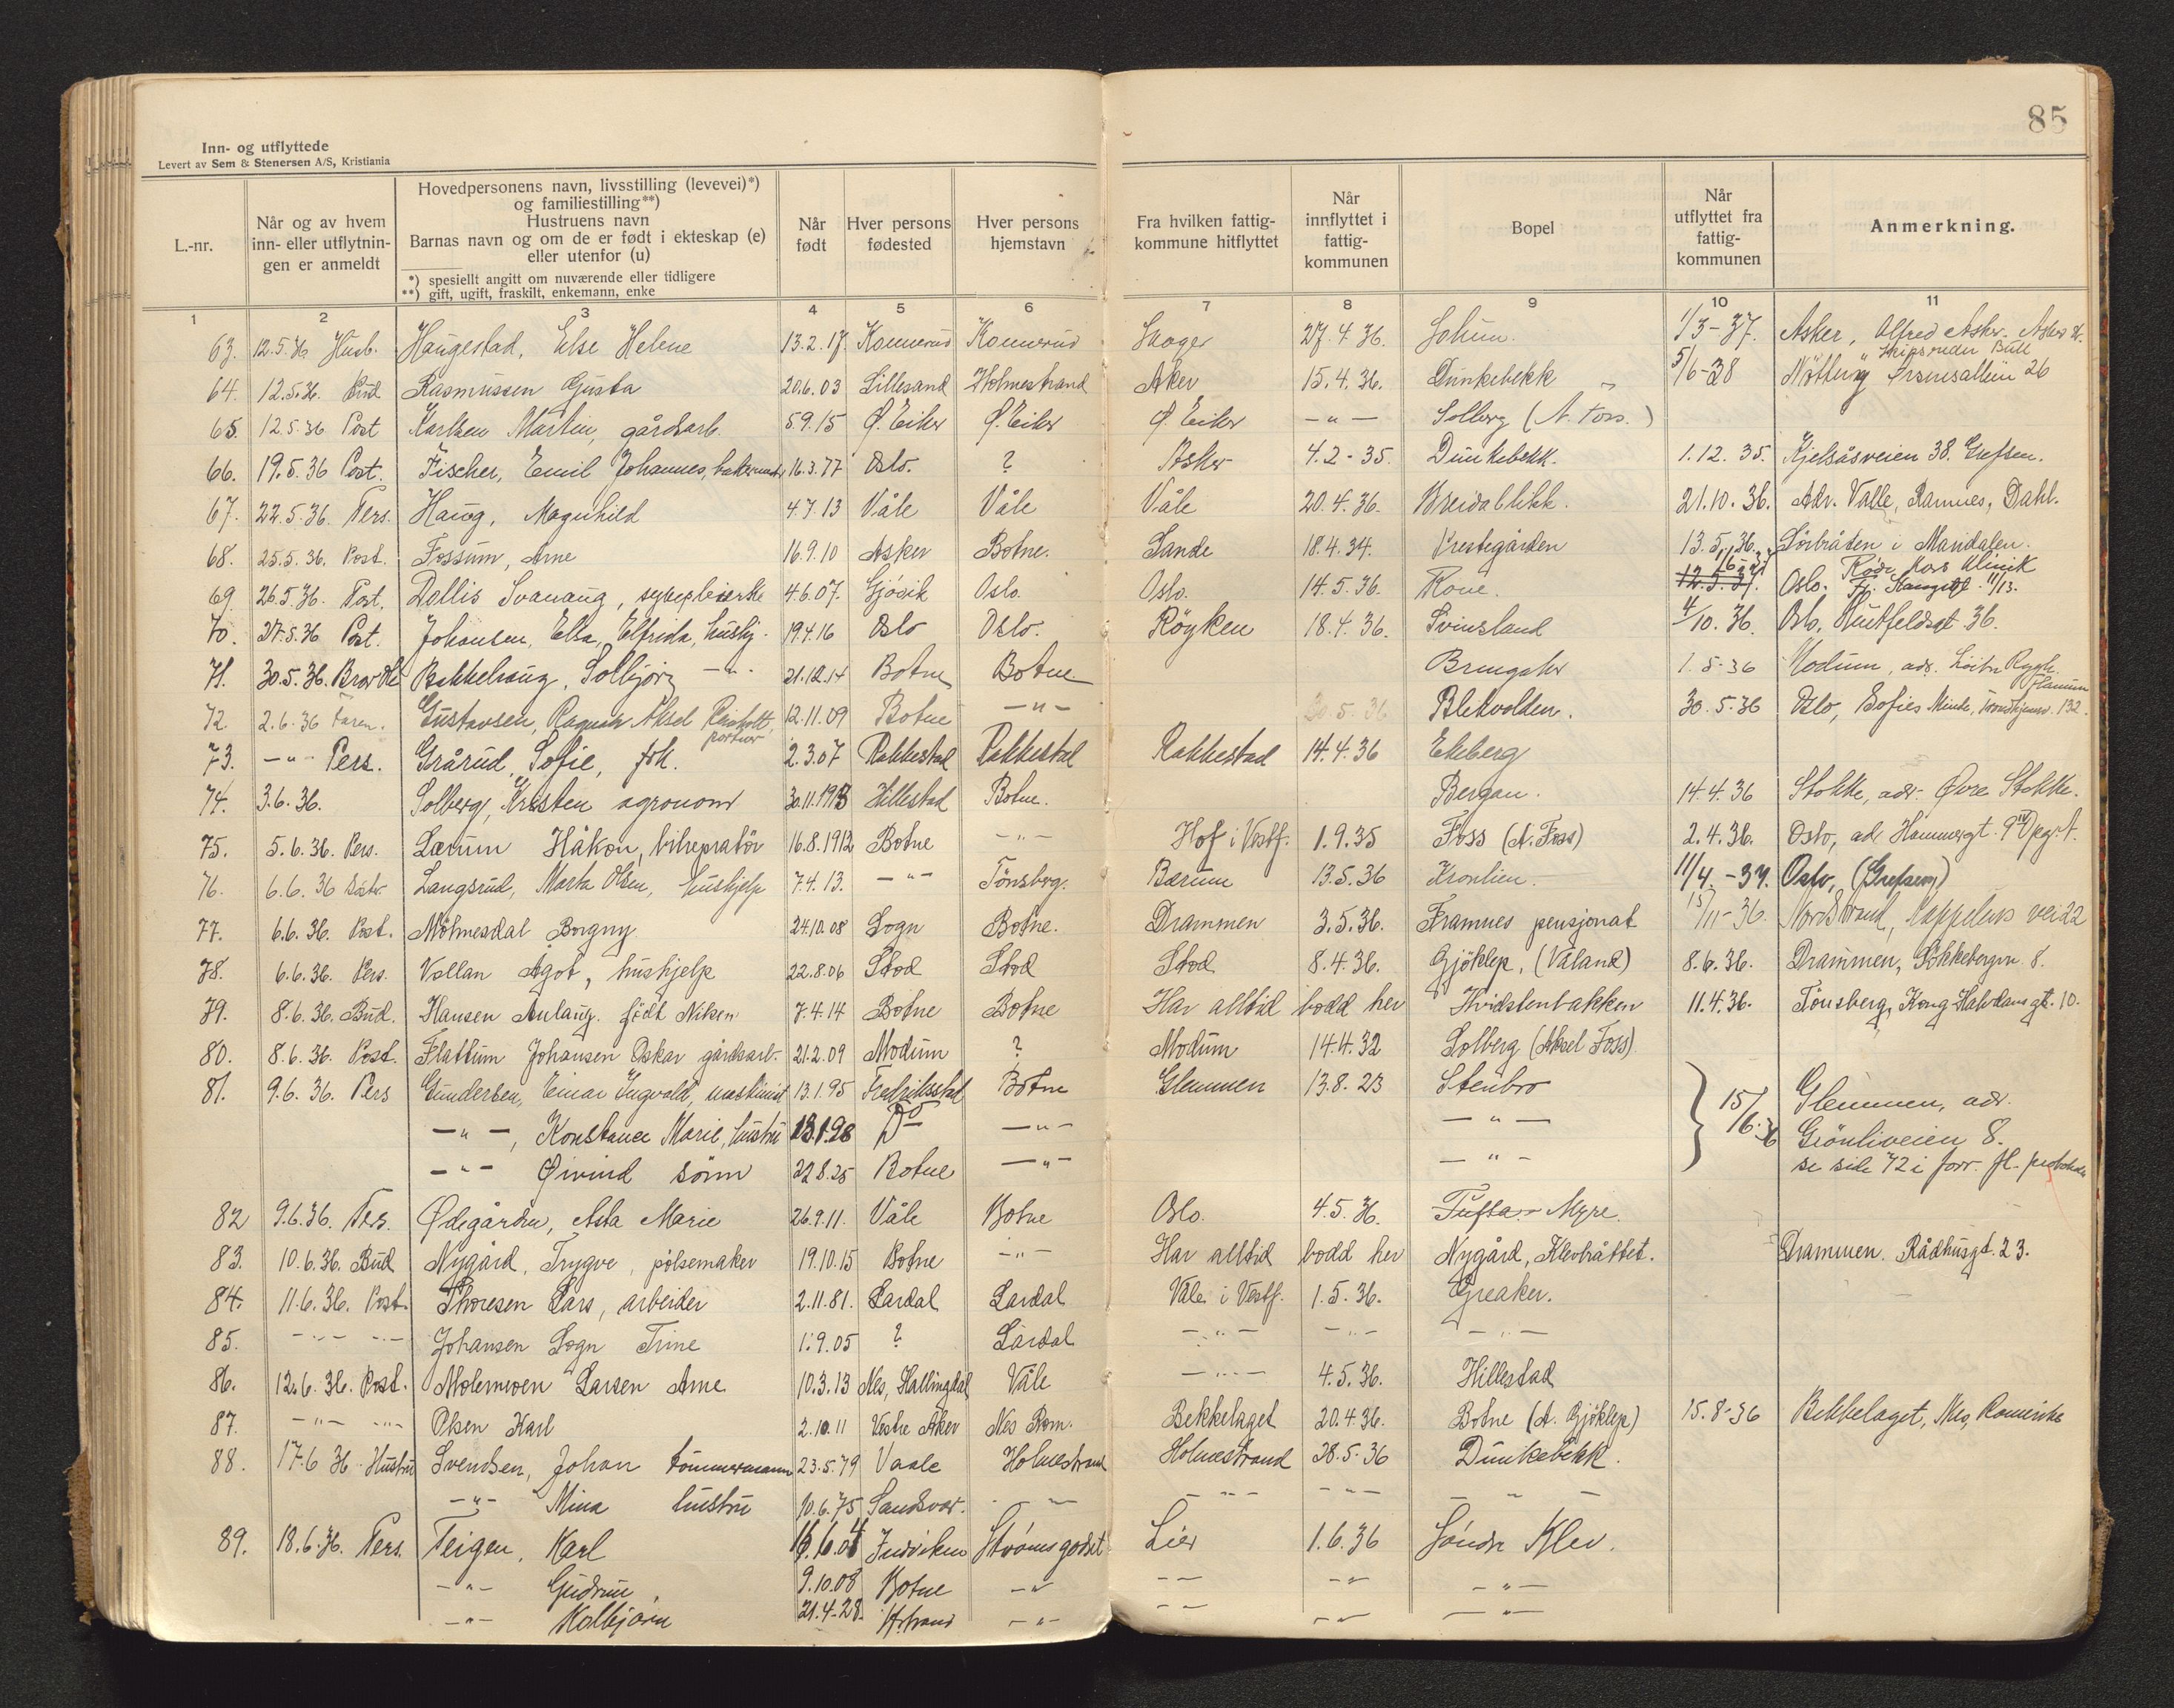 85
Inn- og utflyttede
Levert av Sem & Stenersen A/S, Kristiania
L.-nr.
Når og av hvem inn- eller utflytnin- gen er anmeldt
Hovedpersonens navn, livsstilling (levevei)*)
og familiestilling**)
Hustruens navn
Barnas navn og om de er født i ekteskap (e)
eller utenfor (u)
*) spesiellt angitt om nuværende eller tidligere
**) gift, ugift, fraskilt, enkemann, enke
Når født
Hver persons fødested
Hver persons hjemstavn
Fra hvilken fattig- kommune hitflyttet
Når innflyttet i fattig- kommunen
Bopel
Når utflyttet fra fattig- kommunen
Anmerkning.
1 2 3 4 5 6 7 8 9 10 11
63. 12.5.36 Husb. Haugestad, Else Helene 13.2.17. Konnerud Konnerud Skoger 27.4.36. Solum. 1/3-37. Asker, Alfred Asker. Asker st.
64. 12.5.36. Bud Rasmussen Gusta 20.6.03 Lillesand Holmestrand Aker 15.4.36. Dunkebekk 5/6-38 Nøtterøy Skipsreder Bull 26
65. 12.5.36 Post Karlsen Martin, gårdsarb. 5.9.15 Ø. Eiker Ø. Eiker Ø. Eiker -"- Solberg (A. Foss.)
66. 19.5.36 Post. Fischer, Emil Johannes, 16.3.77 Oslo. ? Asker 4.2-35. Dunkebekk. 1.12.35. Kjelsåsveien 38. Grefsen.
67. 22.5.36. Pers. Haug, Magnhild 4.7.13 Våle Våle Våle 20.4.36. Breidablikk. 21.10.36. Adr. Valle, Ramnes, Dahl.
68. 25.5.36. Post. Fossum, Arne 16.9.10 Asker Botne. Sande 18.4.34. Prestegården 13.5.36. Sörbråten i Mandalen.
69 26.5.36. Post. Dallis Svanaug, sykepleierske 4.6.07. Gjövik Oslo. Oslo. 14.5.36. Rove. 12.5.37. Oslo. Röde Kors Klinik
70. 27.5.36 Post. Johansen, Elsa, Elfrida, hushj. 19.4.16 Oslo Oslo. Röyken 18.4.36. Svinsland 4/10.36. Oslo, Huitfeldsgt 36.
71. 30.5.36. Bakkehaug, Solbjörg -"- 21.12.14 Botne Botne Bringaker 1.5-36 Modum, adr.
72. 2.6.36 Faren. Gustavsen, Ragnar Aksel Reinholt, portier 12.11.09 Botne -"- 30.5.36 Blekvolden. 30.5-36 Oslo, Sofies Minde, Trondhjemsv. 132.
73. -"- Pers. Grårud, Sofie, frk. 2.3.07 Rakkestad Rakkestad Rakkestad 14.4.36 Ekeberg
74. 3.6.36. Solberg, Kristen agronom 30.11.1913 Hillestad Botne. Bergan. 14.4.36 Stokke, adr. Øvre Stokke.
75. 5.6.36. Pers. Lærum Håkon, bilrepratör 16.8.1912 Botne -"- Hof i Vestf. 1.9.35 Foss (A. Foss) 2.4.36. Oslo, ad. Hammergt. 9
76. 6.6.36 Langsrud, Marta Olsen, hushjelp 7.4.13. -"- Tönsberg. Bærum 13.5.36 Kronlien. 11/4.-37. Oslo, (Grefsen)
77. 6.6.36. Post. Mölmesdal Borgny 24.10.08 Sogn Botne. Drammen 3.5.36. Framnes pensjonat 15/11-36. Nordstrand, Kappelens vei 22
78. 6.6.36. Pers. Vallan Ågot, hushjelp 22.8.06 Stod Stod Stod 8.4.36. Gjöklep, (Våland) 8.6.36. Drammen, 8.
79. 8.6.36. Bud. Hansen Anlaug. födt Nilsen 7.4.14 Botne Botne Har alltid bodd her Hvidstenbakken 11.4.36. Tönsberg, Kong Halvdans gt. 10.
80. 8.6.36. Post. Flattum Johansen Oskar gårdsarb. 21.2.09 Modum ? Modum 14.4.32 Solberg (Aksel Foss)
81. 9.6.36. Pers Gundersen, Einar Ingvald, maskinist 13.1.95 Fredriksstad Botne Glemmen 13.8.23 Stenbro 15/6.36 Glemmen, adr.
-"-, Konstanse Marie, hustru 13.1.98 Do -"- -"- Grönliveien 8.
-"- Øivind sönn 22.8.25 Botne -"- -"- se side 72 i forr. fl.-protokoll
82 9.6.36. Pers. Ødegården, Asta Marie 26.9.11. Våle Botne Oslo. 4.5.36. Tufta Myre.
83. 10.6.36. Bud Nygård, Trygve, pölsemaker 19.10.15 Botne -"- Har alltid bodd her Nygård, Klevbråttet. Drammen. Rådhusgt. 23.
84. 11.6.36. Post. Thoresen Lars, arbeider 2.11.81. Lardal Lardal Våle i Vestf. 1.5.36. Greaker.
85. -"- -"- Johansen Sogn Trine 1.9.05 ? Lardal -"- -"- -"-
86. 12.6.36. Post. Molemoen Larsen Arne 10.3.13 Nes, Hallingdal Våle -"- 4.5.36. Hillestad
87. -"- -"- Olsen Karl 2.10.11 Vestre Aker Nes Rom. Bekkelaget 20.4.36. Botne (A. Gjöklep) 15.8-36 Bekkelaget, Nes, Romerike
88. 17.6 36. Hustru Svendsen, Johan tömmermann 23.5.79 Vaale Holmestrand Holmestrand 28.5-36 Dunkebekk.
-"- Mina hustru 10.6.75 Sandsvær. -"- -"- -"- -"-
89. 18.6.36. Pers. Teigen, Karl 16.6.04 Indviken Strömsgodset Lier 1.6.36 Söndre Klev.
-"- Gudrun 9.10.08 Botne -"- -"- -"- -"-
-"- Kolbjörn 21.4-28. H.strand -"- -"- -"- -"-